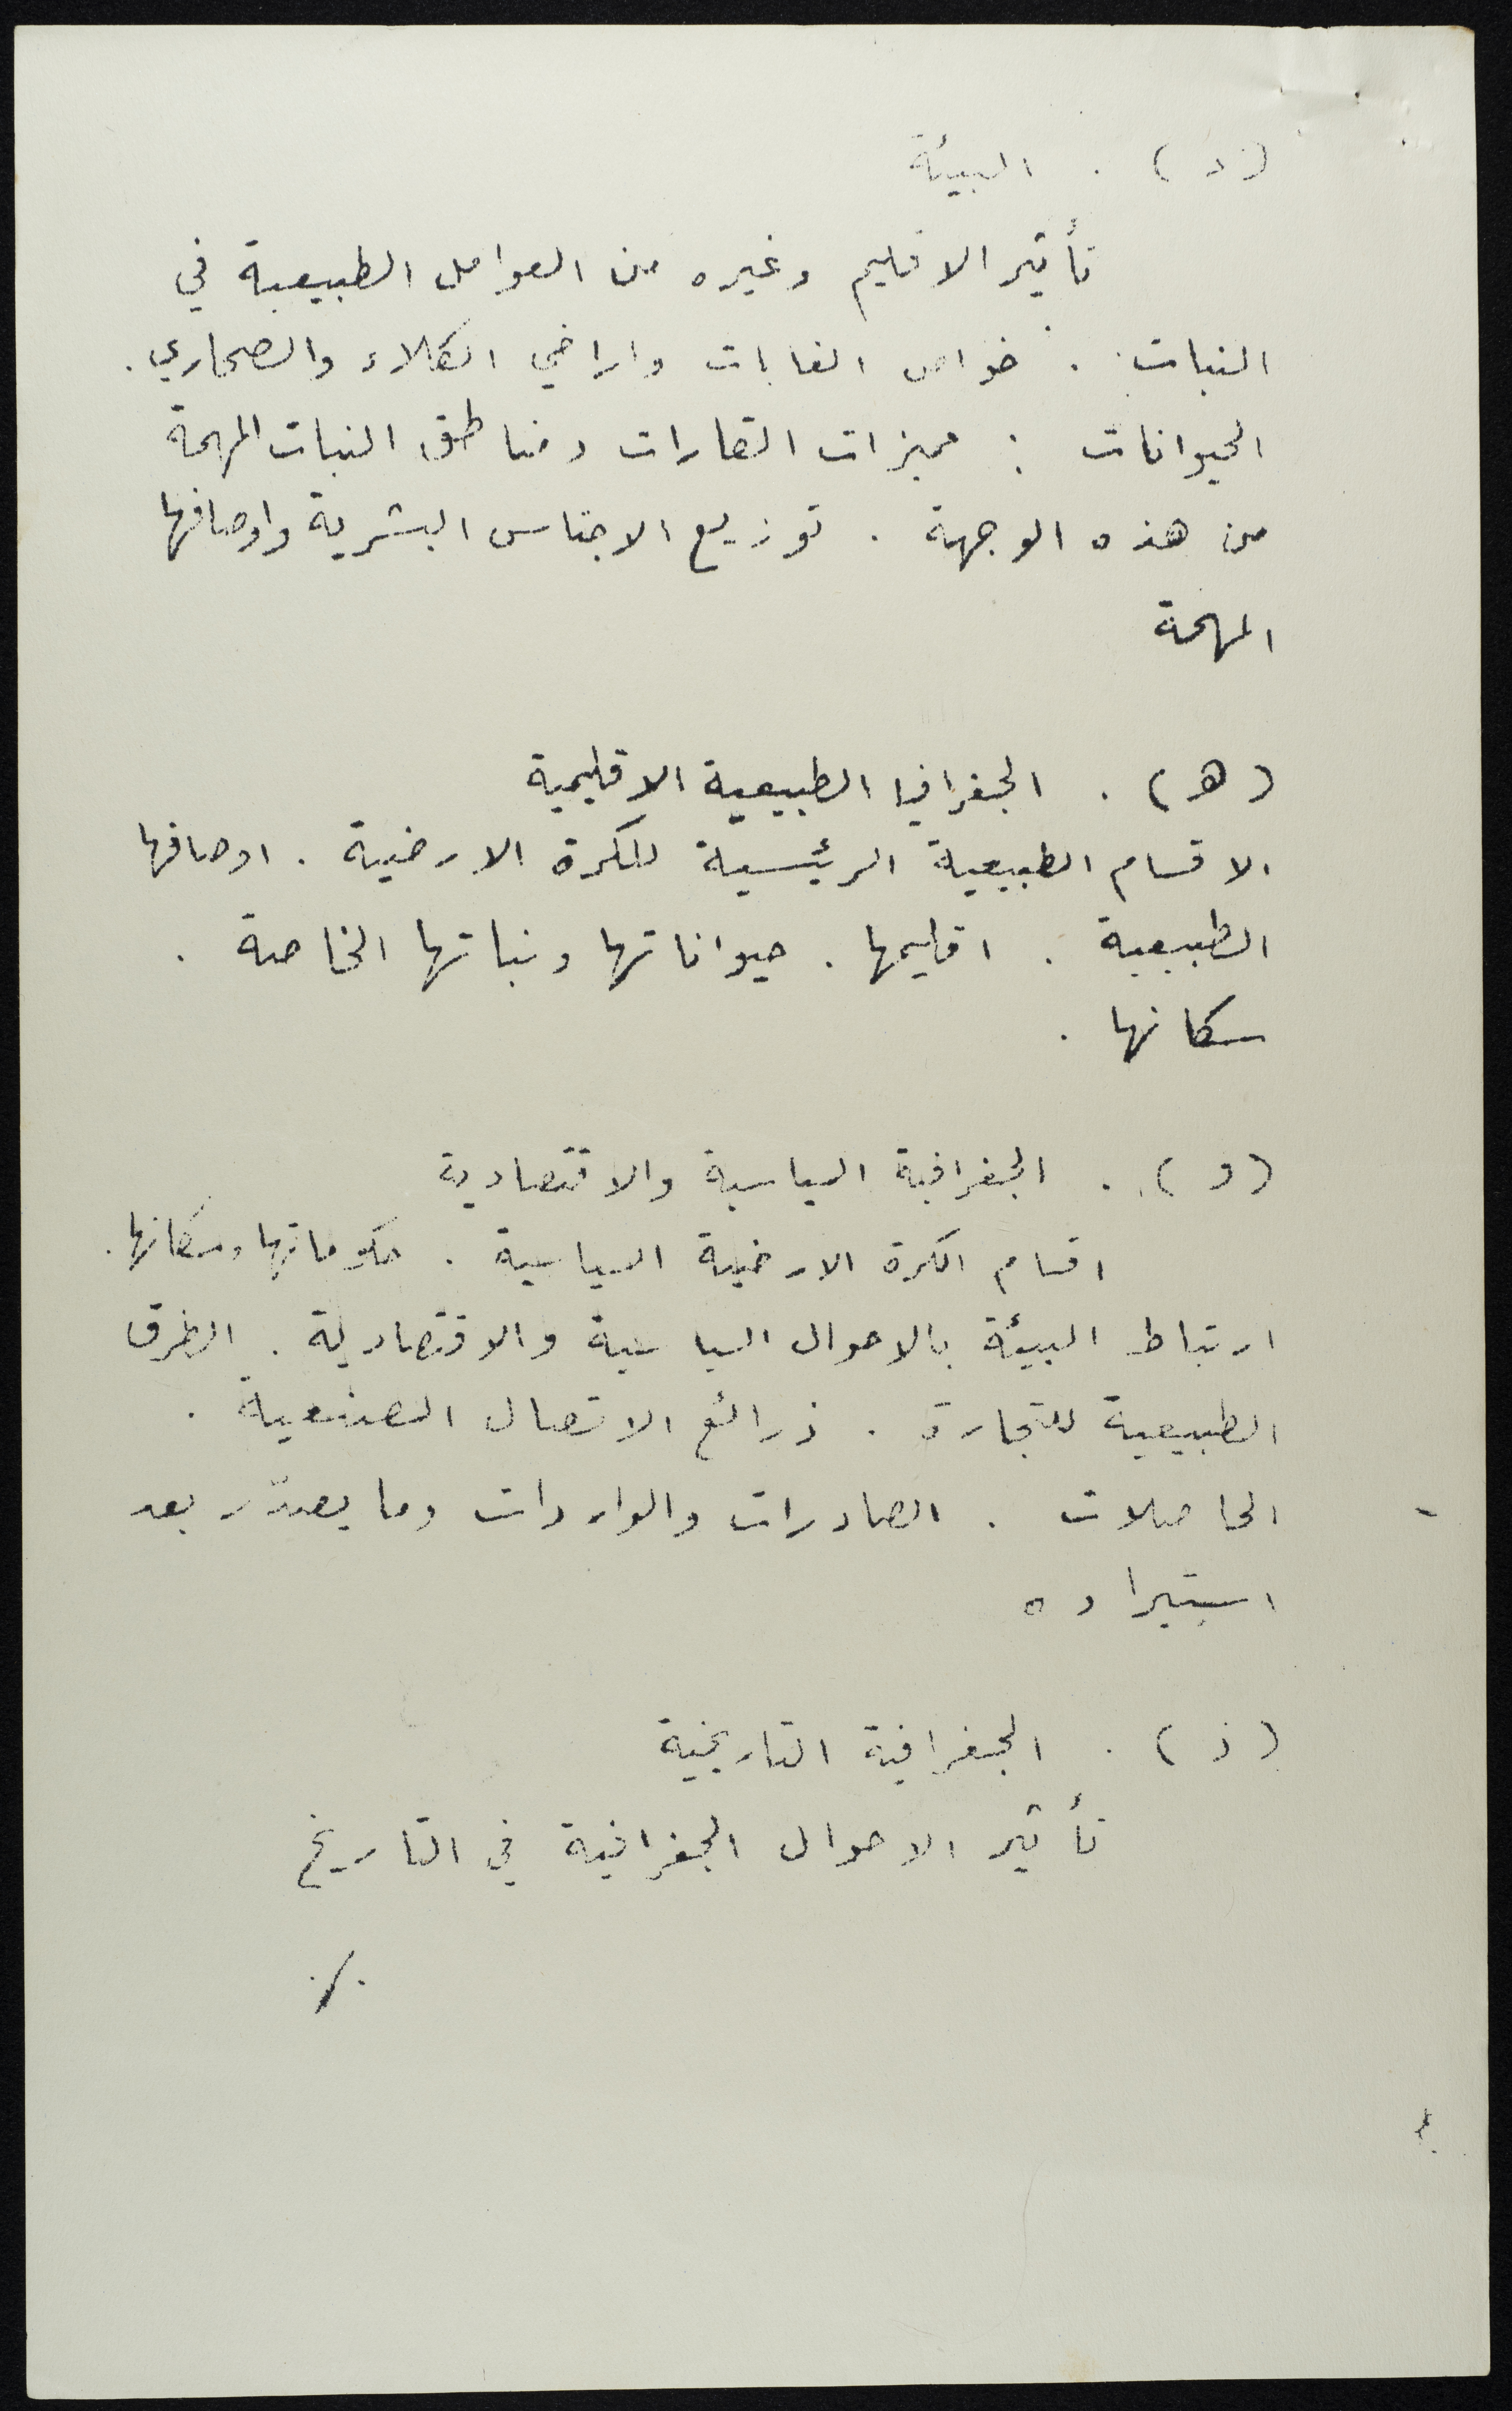 (د) . البيئة
تأثير الاقليم وغيره من العوامل الطبيعية في
النبات . خواص الغابات واراضي الكلاء والصحاري .
الحيوانات : مميزات القارات ومناطق النبات المهمة
من هذه الوجهة . توزيع الاجناس البشرية واوصافها
المهمة
(هـ) . الجغرافيا الطبيعية الاقليمية
الاقسام الطبيعية الرئيسية للكرة الارضية . اوصافها
الطبيعية . اقليمها . حيواناتها ونباتها الخاصة .
سكانها .
(و) . الجغرافية السياسية والاقتصادية
اقسام الكرة الارضية السياسية . حكوماتها وسكانها .
ارتباط البيئة بالاحوال السياسية والاقتصادية . الطرق
الطبيعية للتجارة . ذرائع الاتصال الصنيعية .
الحاصلات . الصادرات والواردات وما يصدّر بعد
استيراده
(ز) . الجغرافية التاريخية
تأثير الاحوال الجغرافية في التاريخ
./.